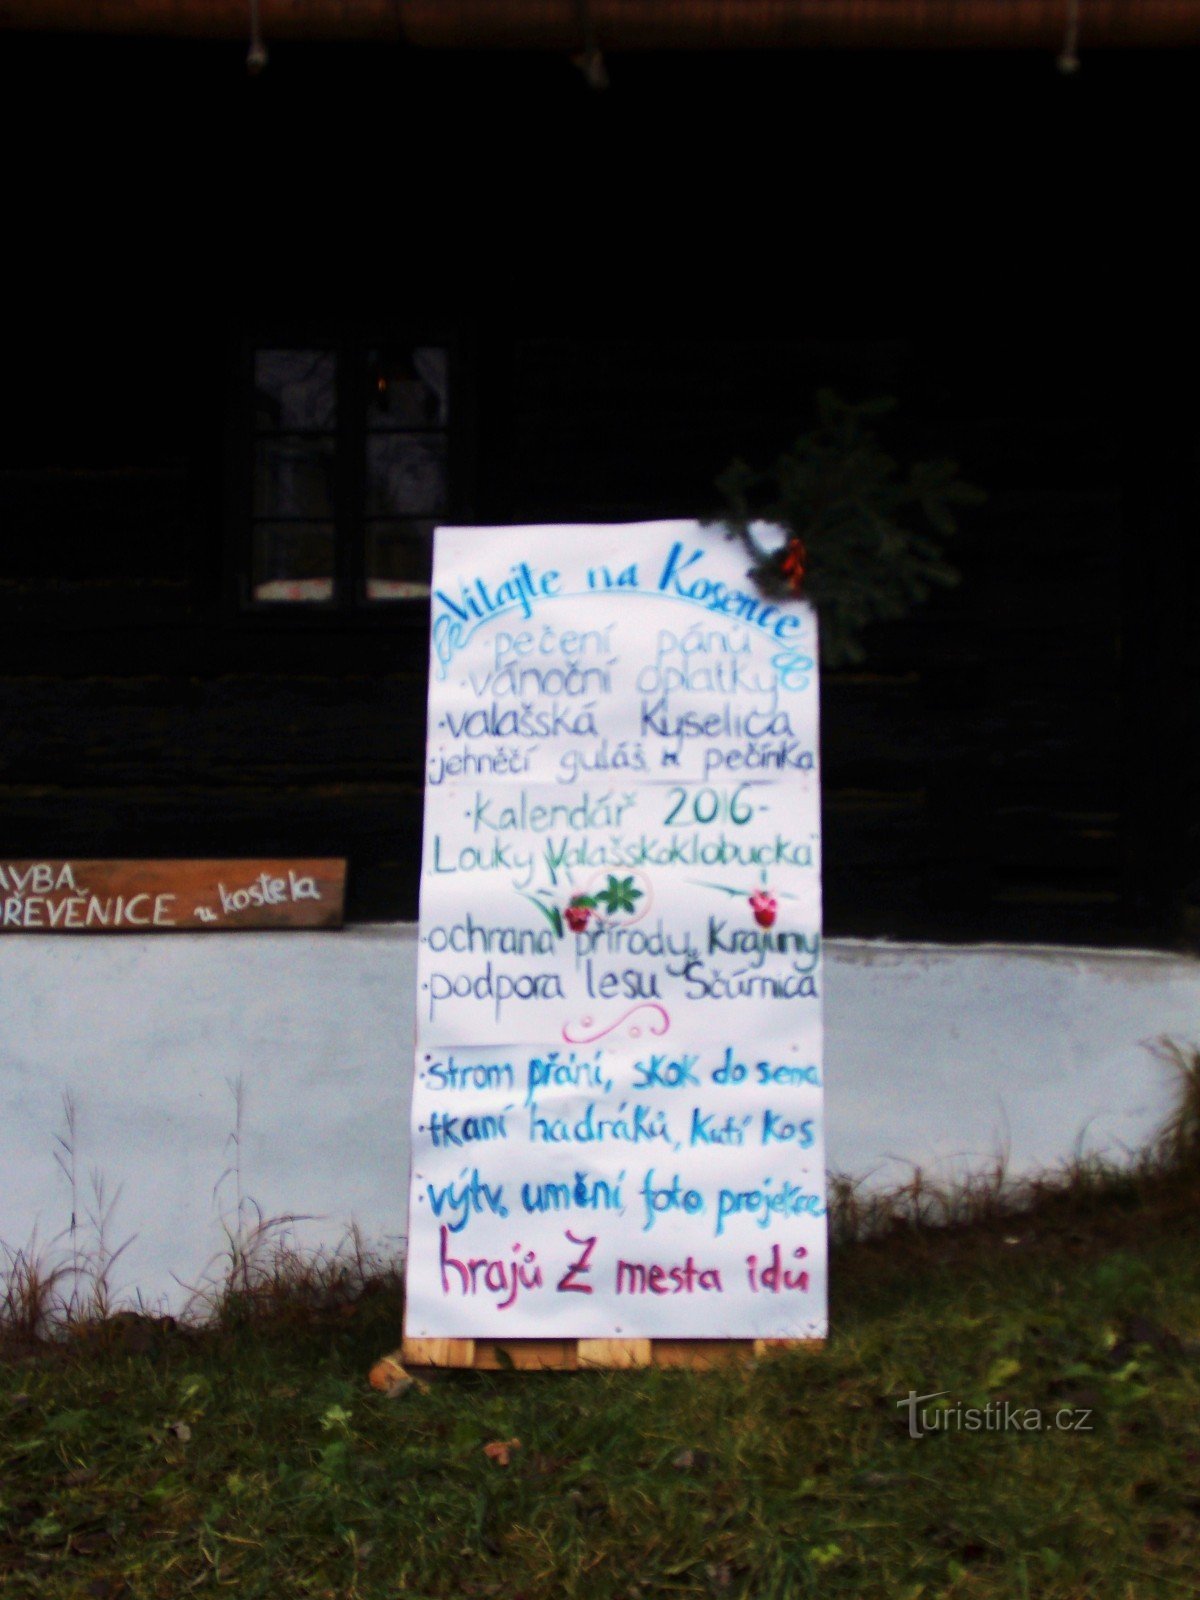 Vítajte na Kosence
·pečení pánů
·vánoční oplatky
·valašská Kyselica
·jehněčí guláš, pečínka
·Kalendář 2016-
Louky Valašskoklobucka
·ochrana přírody, Krajiny
·podpora lesu Ščúrnica
·strom přání, skok do sena
·tkaní hadráků, Kutí Kos
·výtv. umění, foto projekce
hrajů Z mesta idů
AVBA
DŘEVĚNICE u kostela
Turistika.cz